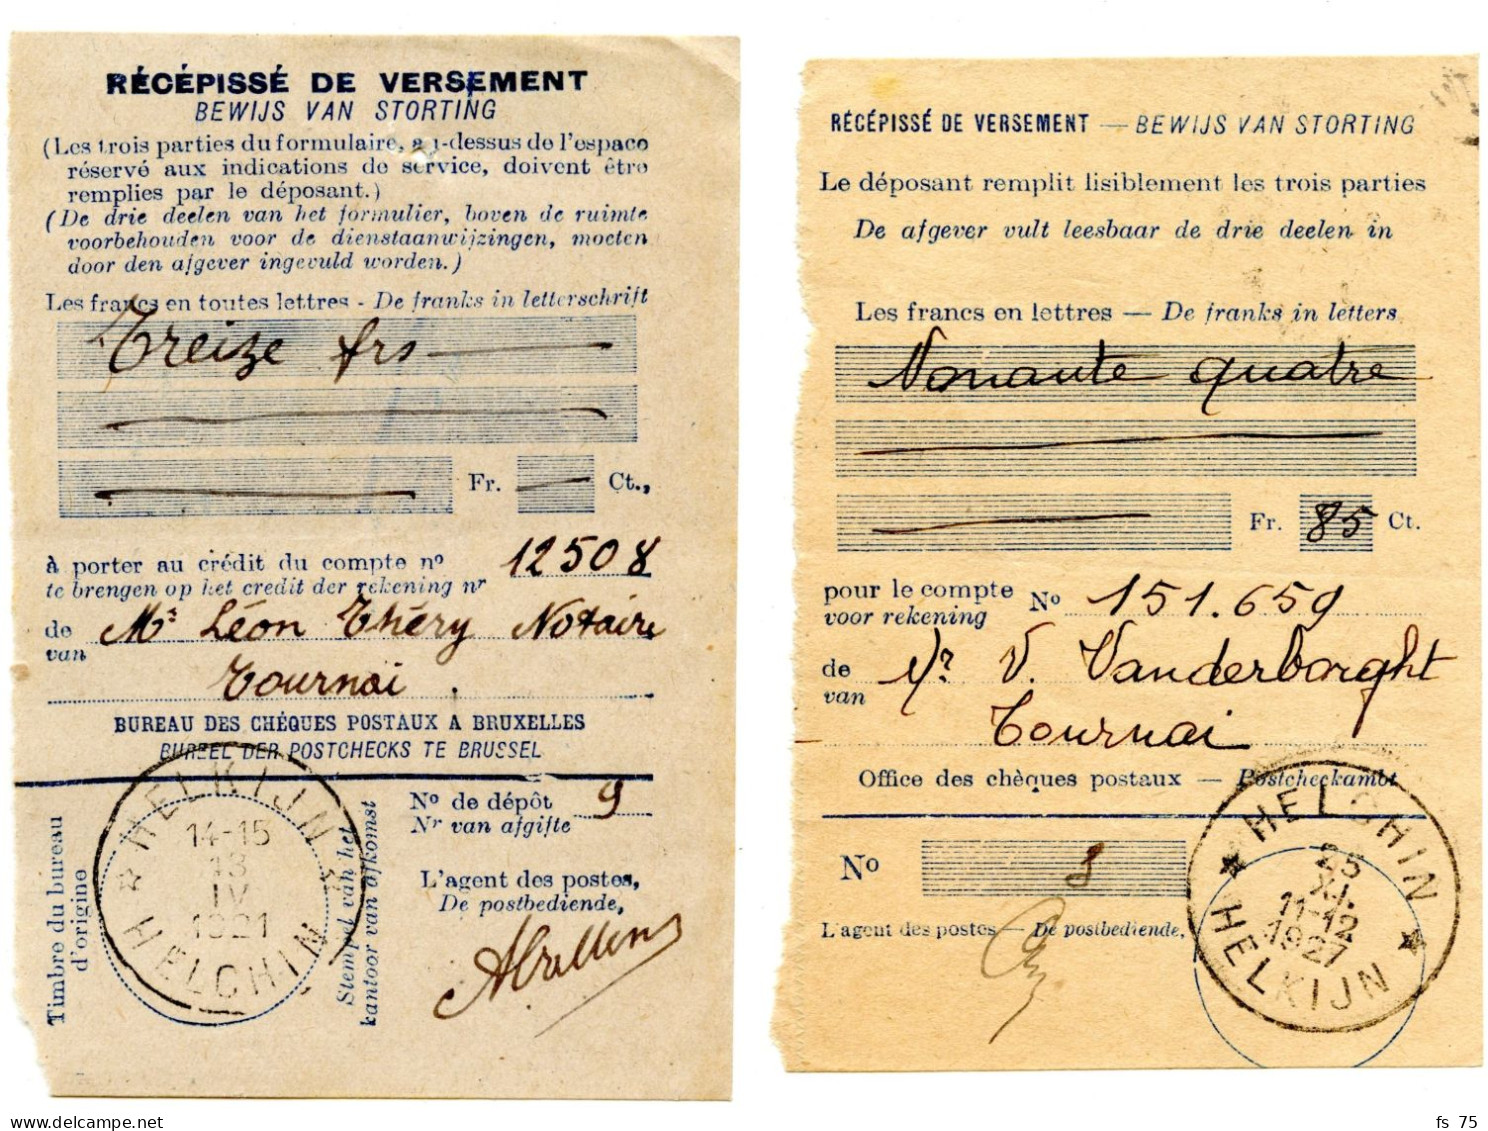 RÉCÉPISSÉ DE VERSEMENT
BEWIJS VAN STORTING
(Les trois parties du formulaire, au-dessus de l'espace
réservé aux indications de service, doivent être
remplies par le déposant.)
(De drie deelen van het formulier, boven de ruimte
voorbehouden voor de dienstaanwijzingen, moeten
door den afgever ingevuld worden.)
Les francs en toutes lettres - De franks in letterschrift
Treize frs
Fr. Ct.,
à porter au crédit du compte nº 12508
te brengen op het credit der rekening nr
de Mr Léon Théry Notaire
van
Tournai.
BUREAU DES CHÉQUES POSTAUX A BRUXELLES
BUREEL DER POSTCHECKS TE BRUSSEL
Nº de dépôt 9
Nr van afgifte
L'agent des postes,
De postbediende,
Timbre du bureau
d'origine
Stempel van het
kantoor van afkomst
HELKIJN
14-15
13
IV
1921
HELCHIN
RÉCÉPISSÉ DE VERSEMENT — BEWIJS VAN STORTING
Le déposant remplit lisiblement les trois parties
De afgever vult leesbaar de drie deelen in
Les francs en lettres — De franks in letters
Nonante quatre
Fr. 85 Ct.
pour le compte
voor rekening Nº 151.659
de Mr V. Vanderborght
van
Tournai
Office des chèques postaux — Postcheckambt
Nº 8
L'agent des postes — De postbediende,
HELCHIN
25
XI.
11-12
1927
HELKIJN
fs 75